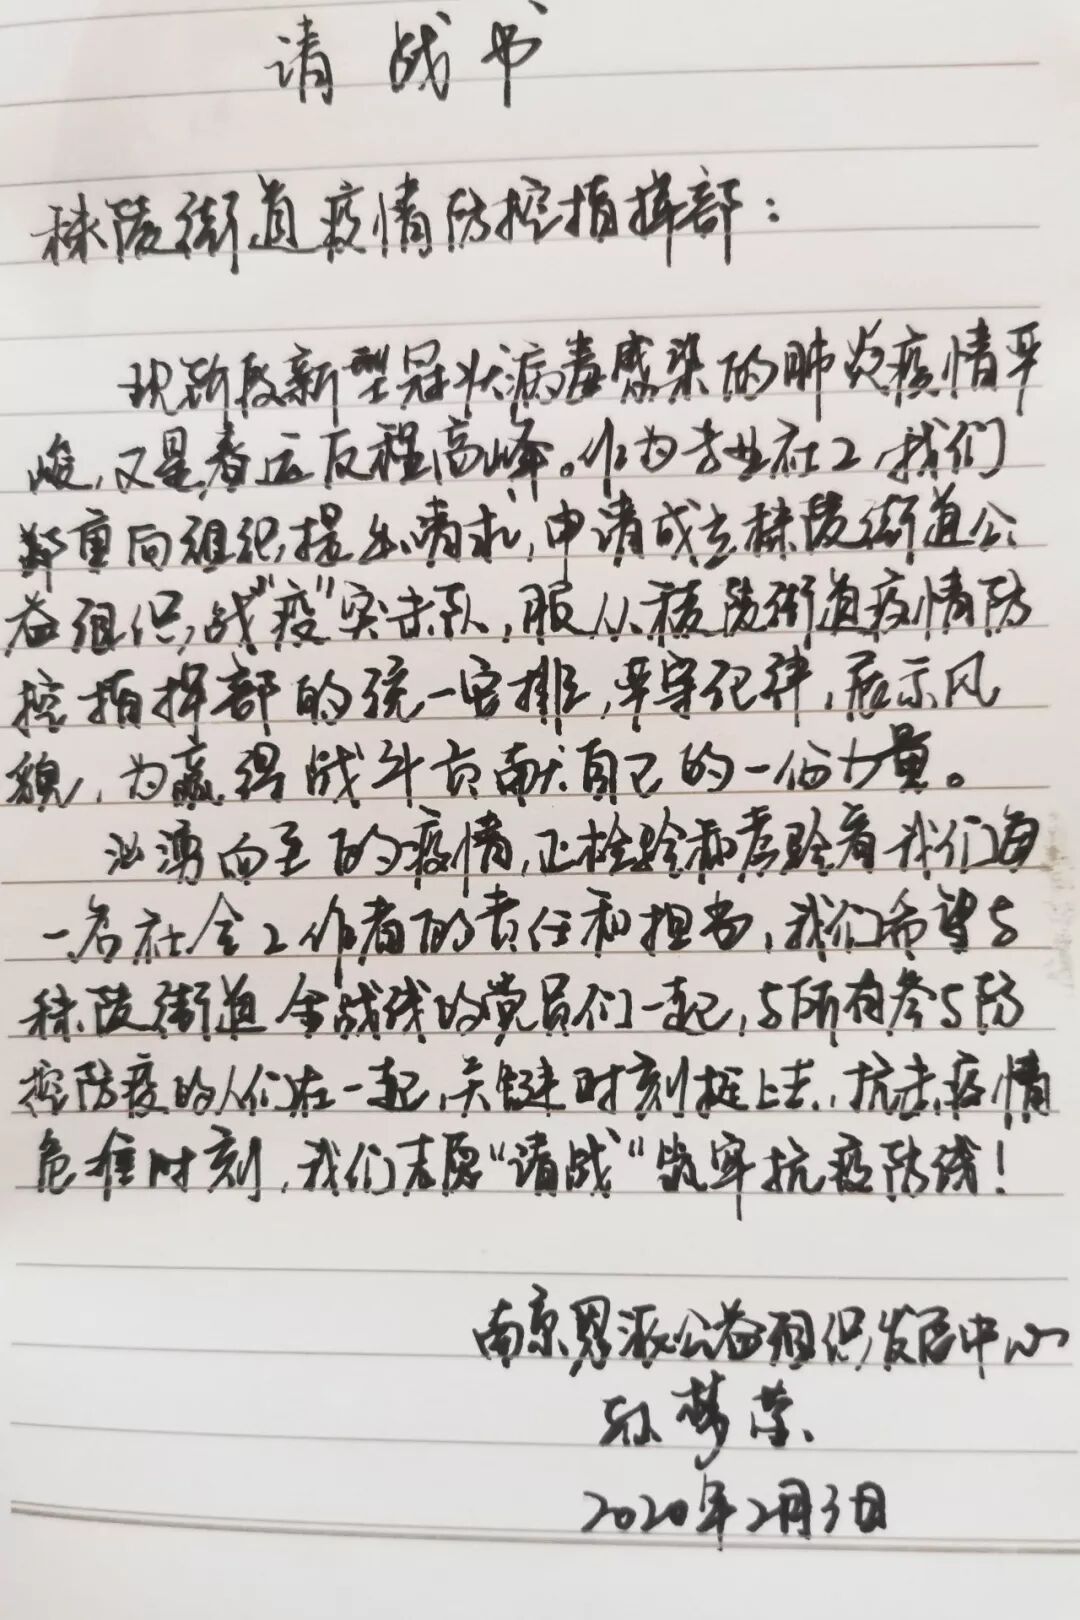 请战书
秣陵街道疫情防控指挥部：
现阶段新型冠状病毒感染的肺炎疫情严
峻，又是春运反程高峰。作为专业社工，我们
郑重向组织提出请求，申请成立秣陵街道公
益组织战“疫”突击队，服从秣陵街道疫情防
控指挥部的统一安排，严守纪律，展示风
貌，为赢得战斗贡献自己的一份力量。
汹涌而至的疫情，正检验和考验着我们每
一名社会工作者的责任和担当，我们希望与
秣陵街道全战线的党员们一起，与所有参与防
控防疫的人们在一起，关键时刻挺上去，抗击疫情
危难时刻，我们志愿“请战”筑牢抗疫防线！
南京恩派公益组织发展中心
孙梦荣
2020年2月3日